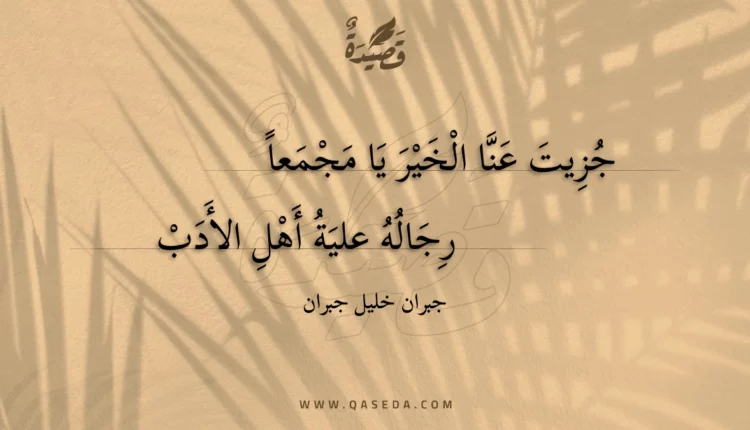 قَصِيدَةٌ
جُزِيتَ عَنَّا الْخَيْرَ يَا مَجْمَعاً
رِجَالُهُ عليَةُ أَهْلِ الأَدَبْ
جبران خليل جبران
WWW.QASEDA.COM